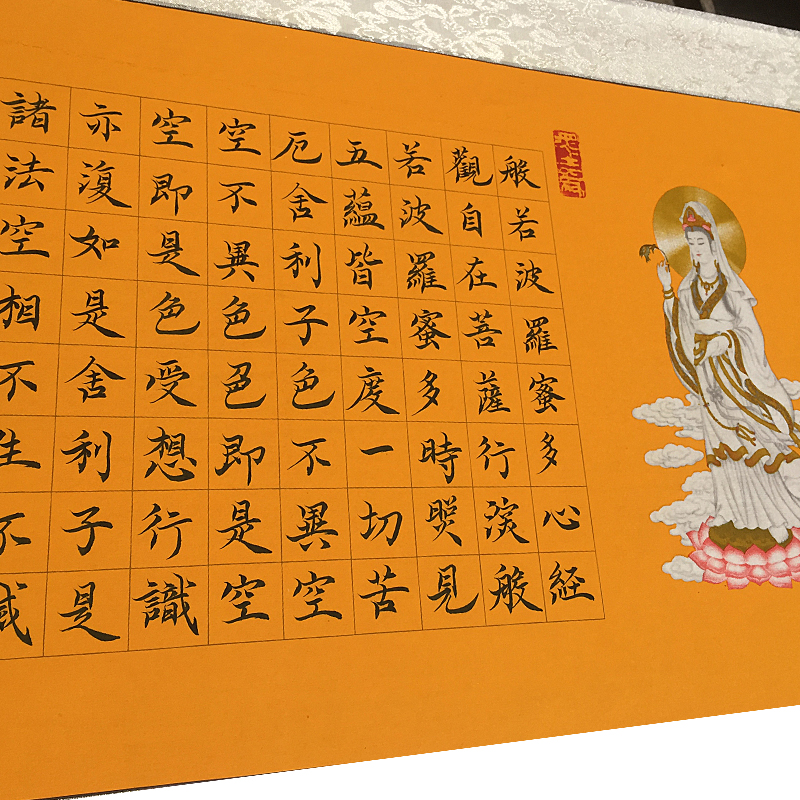 般若波羅蜜多心経
觀自在菩薩行深般
若波羅蜜多時照見
五蘊皆空度一切苦
厄舍利子色不異空
空不異色色即是空
空即是色受想行識
亦復如是舍利子是
諸法空相不生不滅